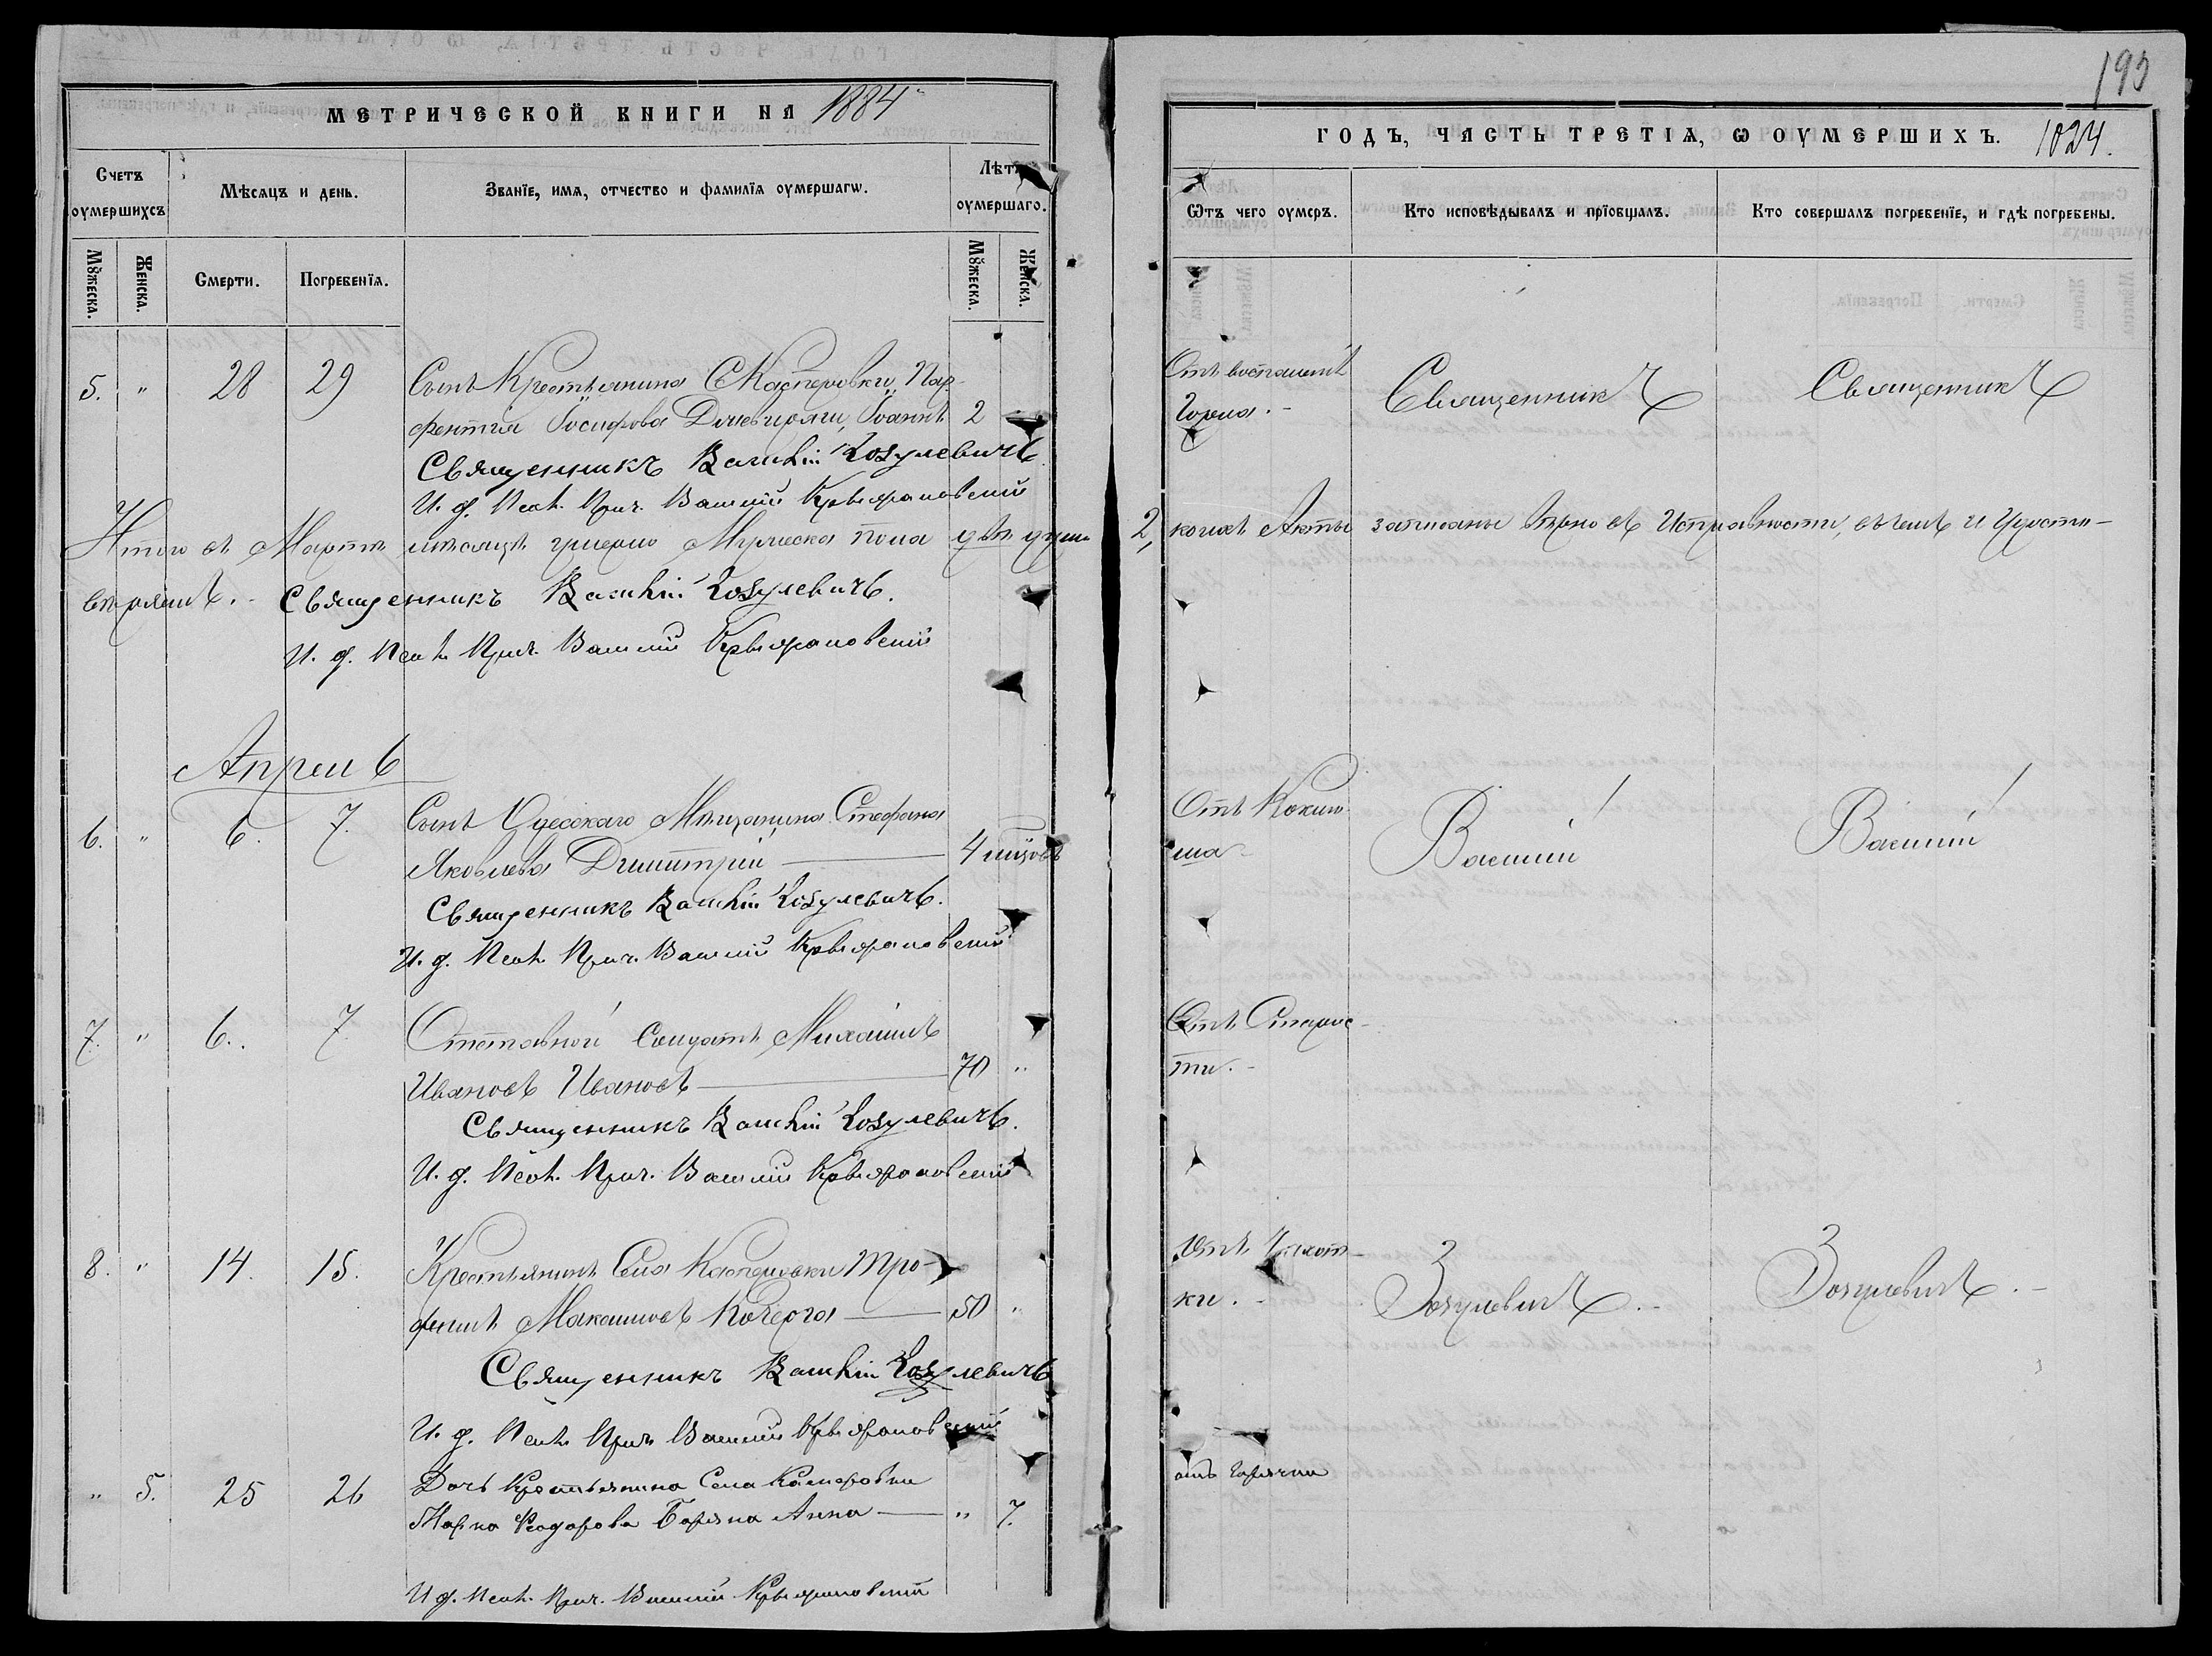 МЕТРИЧЕСКОЙ КНИГИ НА 1884
Счетъ оумершихъ
Мѣсяцъ и день.
Званїе, имѧ, отчество и фамилїѧ оумершагѡ.
Лѣта оумершаго.
Мꙋжеска.
Женска.
Смерти.
Погребенїѧ.
Мꙋжеска.
Женска.
5. " 28 29 Сынъ Крестьянина С. Касперовки, Пар-
фентія Іосифова Іоаннъ 2
Священникъ Василій Зозулевичъ
И. д. Псал. Прич. Василій
Итого въ Мартѣ мѣсяцѣ умерло Мужеска пола двѣ души
Священникъ Василій Зозулевичъ.
И. д. Псал. Прич. Василій
Апрель
6. " 6. 7. Сынъ Одесскаго Мѣщанина Стефана
Яковлева Димитрій 4
Священникъ Василій Зозулевичъ.
И. д. Псал. Прич. Василій
7. " 6. 7. Отставной Солдатъ Михаилъ
Ивановъ Ивановъ 70 "
Священникъ Василій Зозулевичъ.
И. д. Псал. Прич. Василій
8. " 14. 15. Крестьянинъ Села Касперовки Тро-
фимъ Максимовъ Кочерга 50 "
Священникъ Василій Зозулевичъ
И. д. Псал. Прич. Василій
" 5. 25 26 Дочь Крестьянина Села Касперовки
Марка Феодорова Анна " 7.
И. д. Псал. Прич. Василій
193
ГОДЪ, ЧАСТЬ ТРЕТІѦ, Ѡ ОУМЕРШИХЪ. 1024.
Ѿтъ чего оумеръ.
Кто исповѣдывалъ и прїобщалъ.
Кто совершалъ погребенїе, и гдѣ погребены.
Отъ воспаленія
Горла.
Священникъ
Священникъ
2, коихъ Акты записаны вѣрно въ Исправности, въ чемъ и
Отъ Коклю-
ша
Василій
Василій
Отъ Старос-
ти.
Отъ Чахот-
ки.
Зозулевичъ.
Зозулевичъ.
отъ Горячки